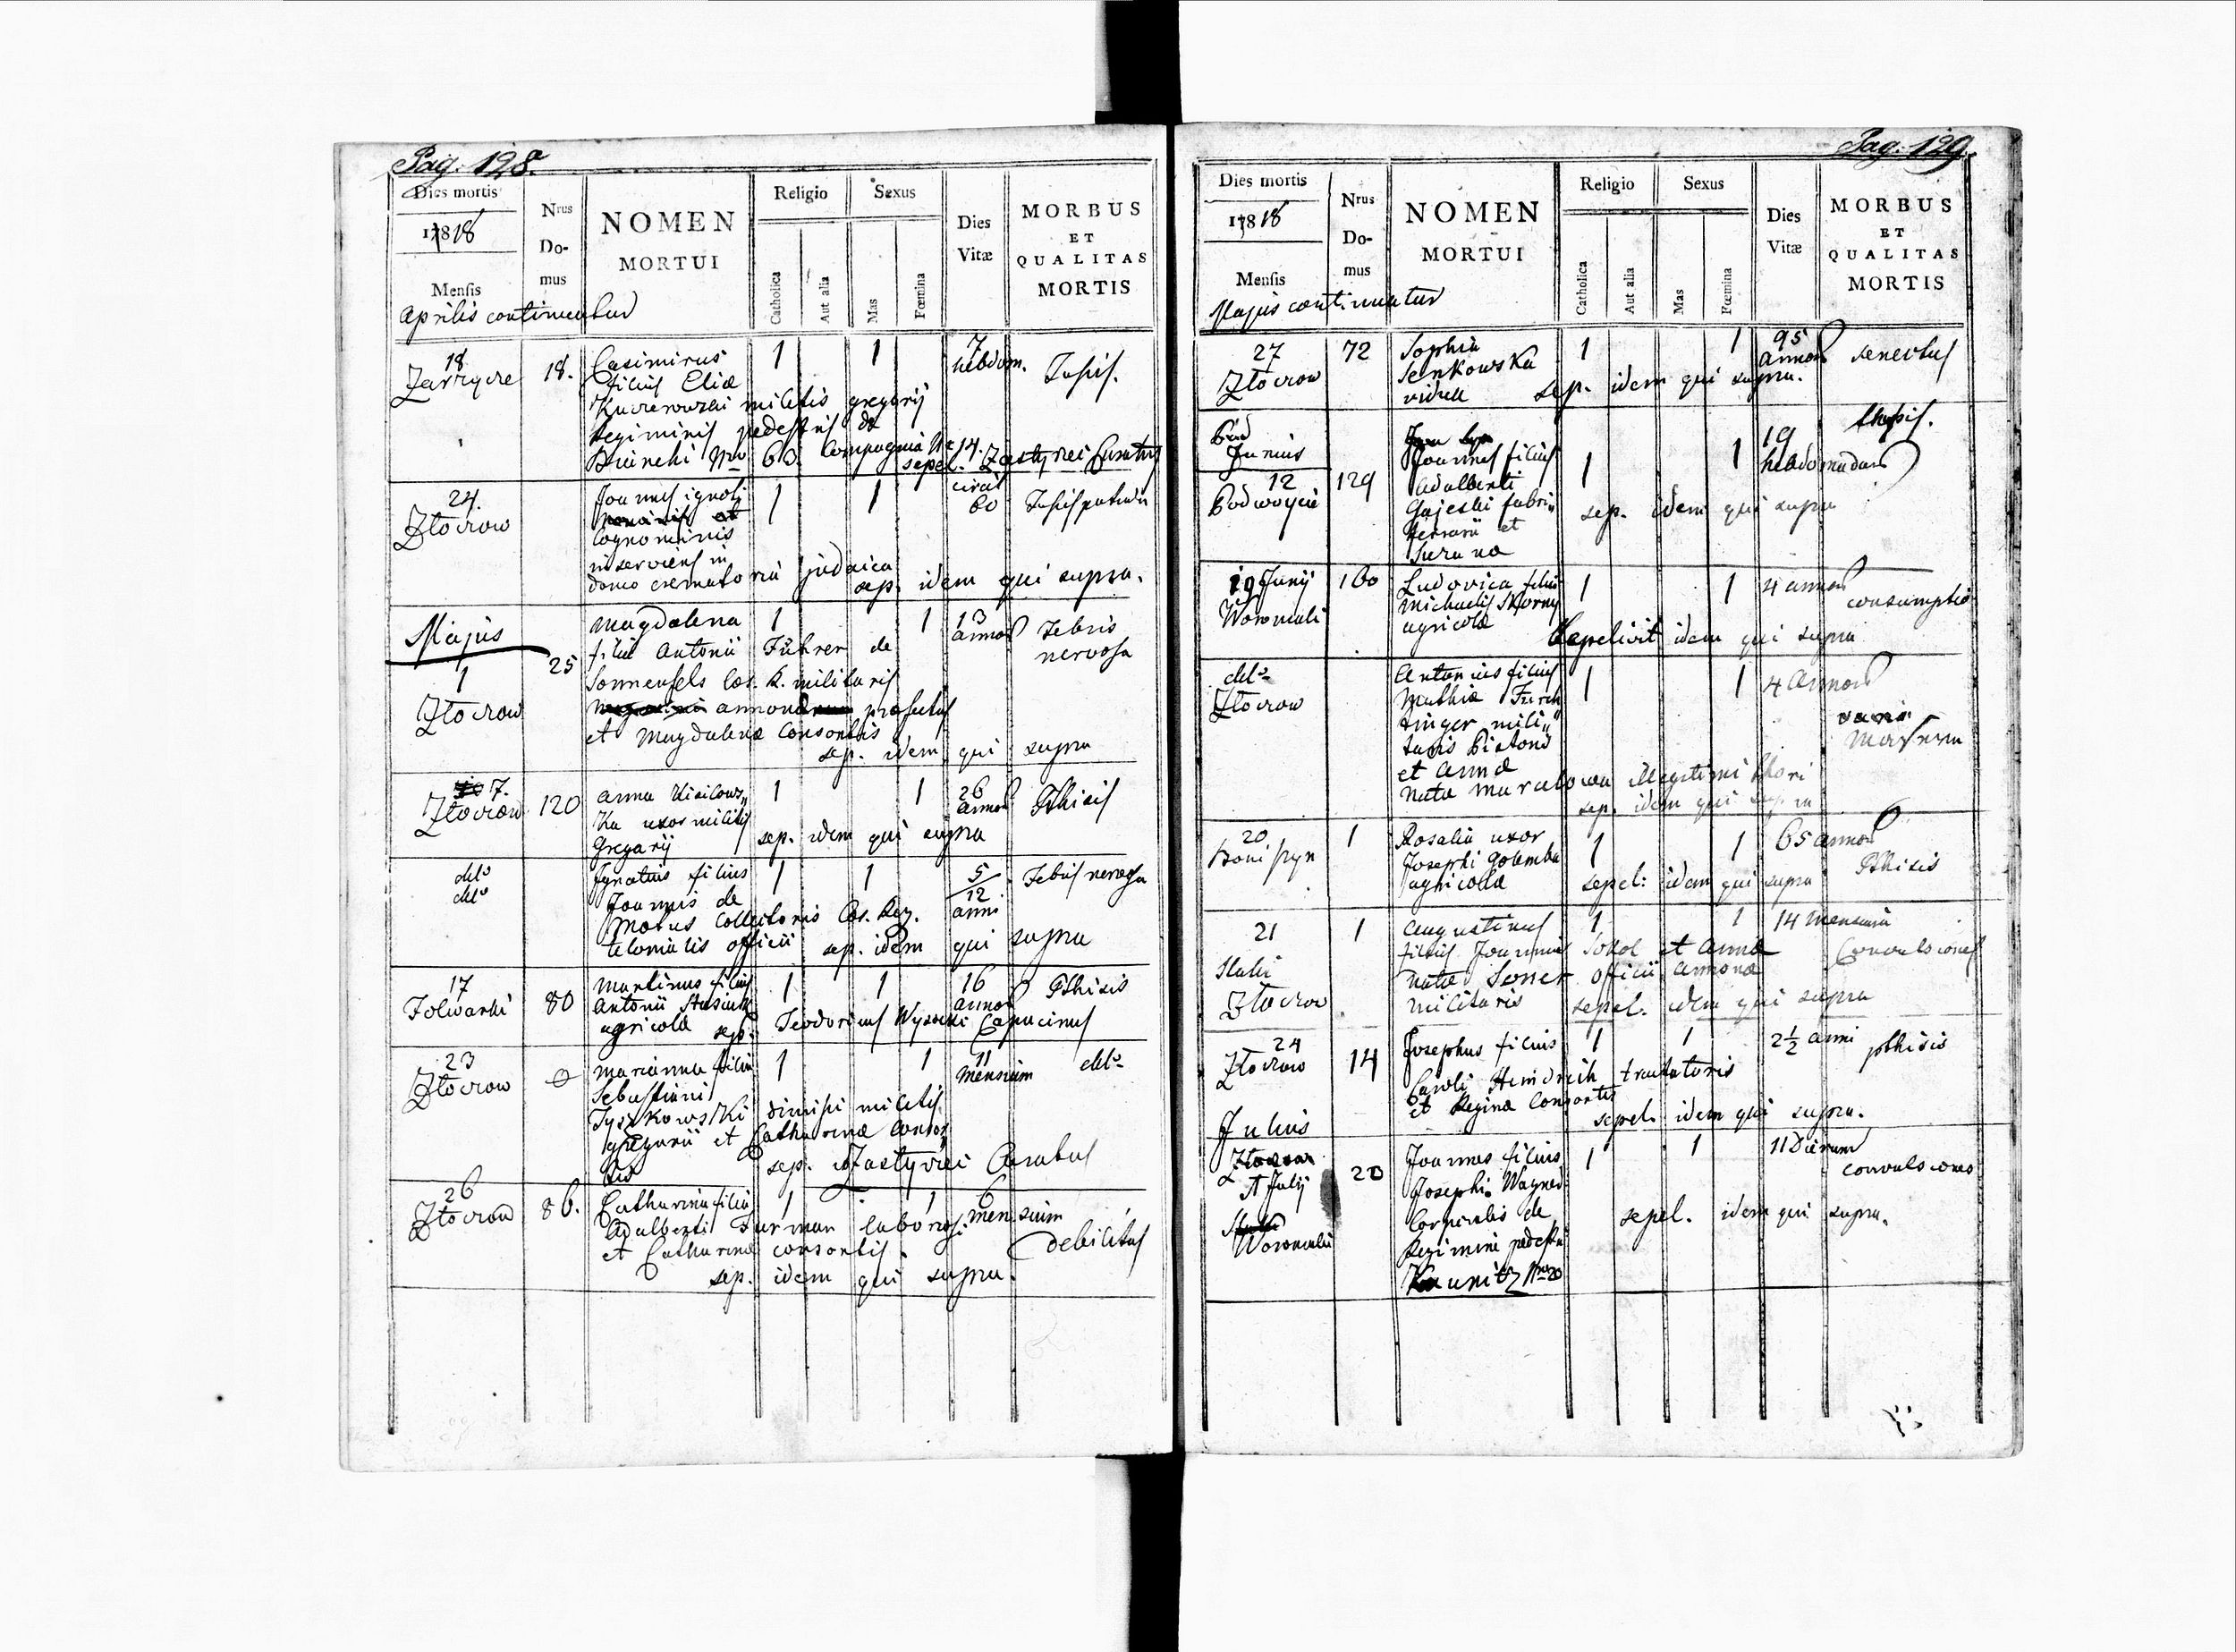 Pag. 128.
Dies mortis
1818
Mensis
Nrus
Do-
mus
NOMEN
MORTUI
Religio
Catholica
Aut alia
Sexus
Mas
Fœmina
Dies
Vitæ
MORBUS
ET
QUALITAS
MORTIS
Aprilis continuatur
18
18.
Casimirus
1
1
7
hebdom.
Tussis.
filius Eliæ
militis gregarij
Regiminis pedestris de
Bianchi Nro 63. Compagnia No 14.
sepel. Curatus
24
Złoczow
Joannes ignoti
1
1
circa
60
Tussis
cognominis
inserviens in
domo crematoria judaica
sep. idem qui supra.
Majus
1
Złoczow
25
Magdalena
1
1
13
annor
Febris
nervosa
filia Antonii Führer de
Sonnenfels Cæs. R. militaris
annonæ
et Magdalenæ Consortis
sep. idem qui supra
7.
Złoczow
120
Anna Kisilows„
1
1
26
annor
Pthisis
ka uxor militis
Gregarij
sep. idem qui supra
detto
detto
Ignatius filius
1
1
5/12
anni
Febris nervosa
Joannis de
Collectoris Cæs. Reg.
telonialis officii sep. idem qui supra
17
Folwarki
80
Martinus filius
1
1
16
annor
Pthisis
Antonii Stasiuk
agricolæ sep. Teodoricus Wysocki Capucinus
23
Złoczow
Marianna filia
1
1
11
mensium
detto
Sebastiani
Tyszkowski dimissi militis
gregarii et Catharinæ Consor„
tis
sep. Curatus
26
Złoczow
86.
Catharina filia
1
1
6
mensium
debilitas
Adalberti Furman laborios.
et Catharinæ consortis.
sep. idem qui supra.
Pag. 129.
Dies mortis
1818
Mensis
Nrus
Do-
mus
NOMEN
MORTUI
Religio
Catholica
Aut alia
Sexus
Mas
Fœmina
Dies
Vitæ
MORBUS
ET
QUALITAS
MORTIS
Majus continuatur
27
Złoczow
72
Sophia
Senkowska
vidua
1
1
95
annor
senectus
sep. idem qui supra.
Junius
12
Podwoycie
129
Joannes filius
Adalberti
Gajeski fabri„
ferrarii et
1
1
19
hebdomadar
thussis.
sep. idem qui supra
19 Junij
Woroniaki
160
Ludovica filia
Michaelis
agricolæ
1
1
4 annor
consumptio
Sepelivit idem qui supra
detto
Złoczow
Antonius filius
Mathiæ
tinger mili„
taris Pistoris
et Annæ
natæ illegitimi thori
1
1
4 annor
sep. idem qui supra
20
1
Rosalia uxor
Josephi Golemba
agricolæ
1
1
65 annor
Pthisis
sepel: idem qui supra
21
Złoczow
1
Augustinus
1
1
14 mensium
Convulsiones
filius Joannis Sokol et Annæ
natæ officii annonæ
militaris sepel. idem qui supra
24
Złoczow
14
Josephus filius
1
1
2½ anni
pthisis
Caroli Heindrich tractatoris
et Reginæ Consortis
sepel. idem qui supra.
Julius
Julij
Woroniaki
20
Joannes filius
Josephi Wagner
Corporalis de
Regimine pedestri
Kaunitz Nro 20
1
1
11 Dierum
convulsiones
sepel. idem qui supra.